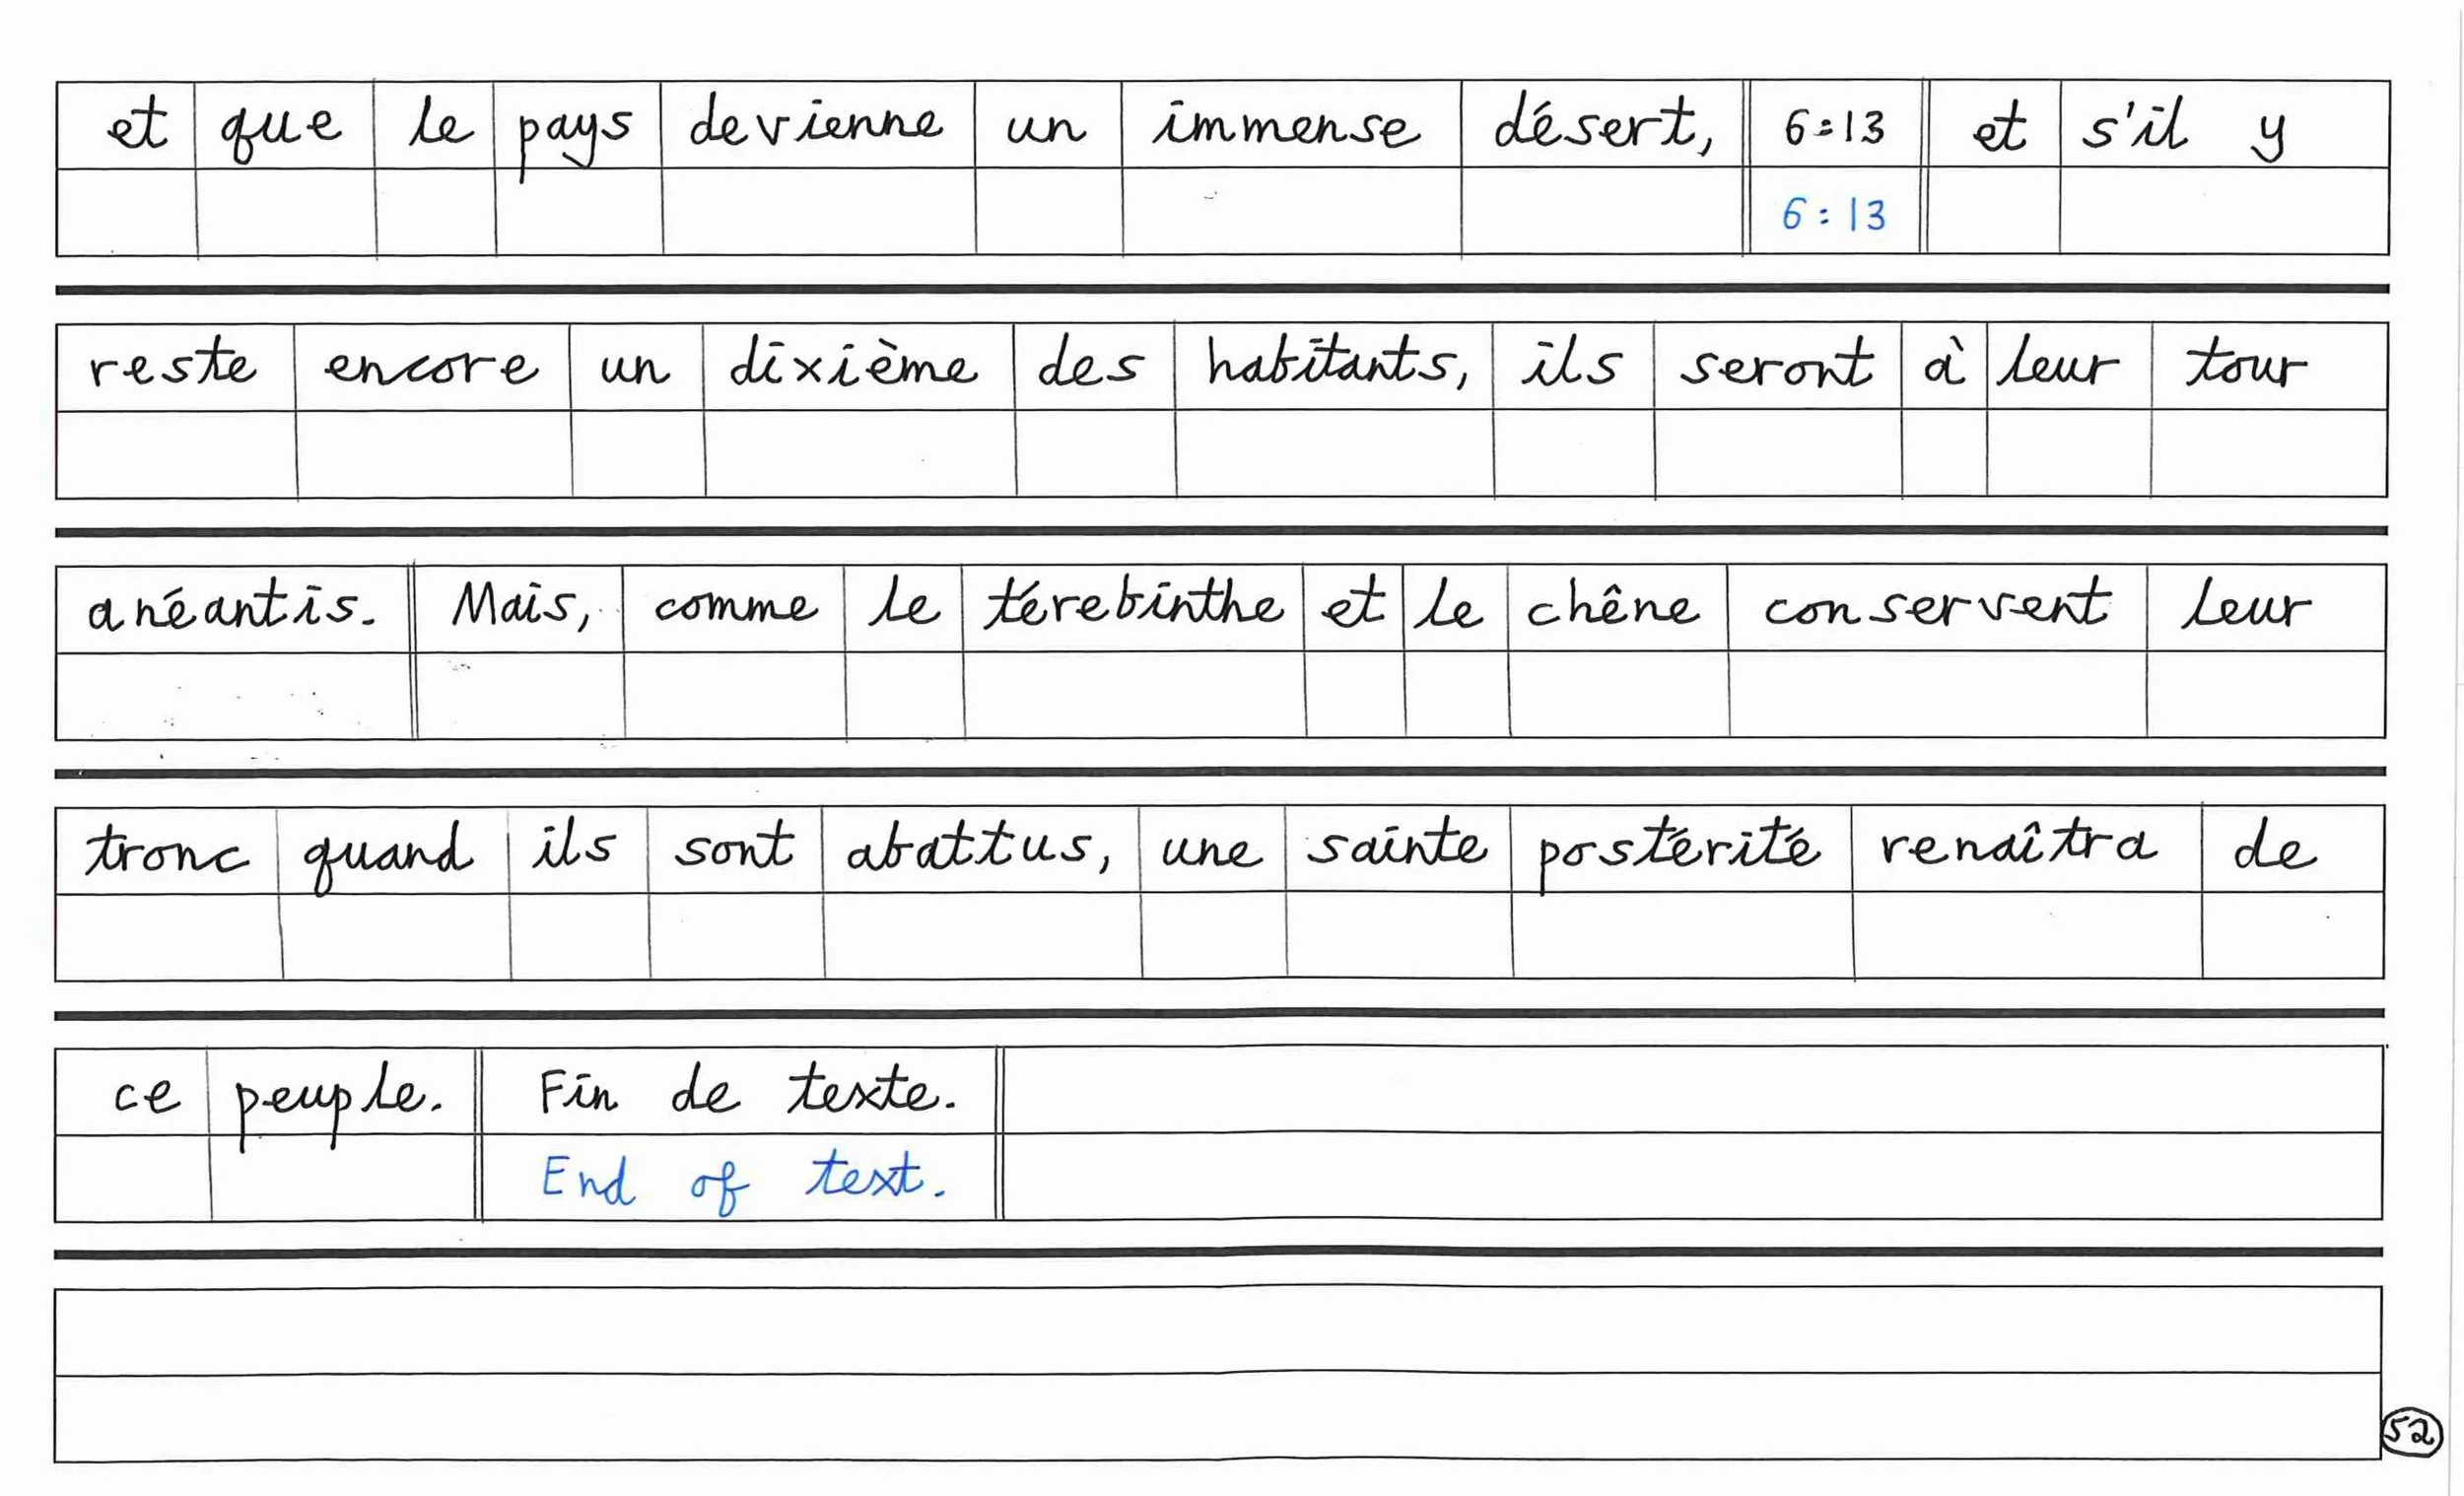 et que le pays devienne un immense désert, 6:13 et s'il y
6:13
reste encore un dixième des habitants, ils seront à leur tour
anéantis. Mais, comme le térebinthe et le chêne conservent leur
tronc quand ils sont abattus, une sainte postérité renaîtra de
ce peuple. Fin de texte.
End of text.
52